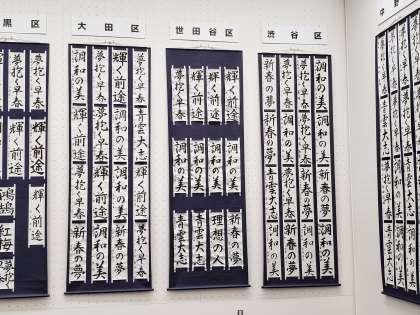 黒区
夢抱く早春
夢抱く早春
輝く前途
輝く前途
輝く前途
紅梅
大田区
夢抱く早春
青雲大志
輝く前途
夢抱く早春
輝く前途
調和の美
調和の美
新春の夢
夢抱く早春
夢抱く早春
輝く前途
調和の美
調和の美
輝く前途
夢抱く早春
新春の夢
世田谷区
輝く前途
輝く前途
輝く前途
夢抱く早春
調和の美
調和の美
調和の美
調和の美
新春の夢
理想の人
青雲大志
青雲大志
渋谷区
調和の美
調和の美
新春の夢
調和の美
夢抱く早春
夢抱く早春
新春の夢
調和の美
夢抱く早春
調和の美
夢抱く早春
新春の夢
新春の夢
新春の夢
青雲大志
調和の美
中野
夢抱く早春
青雲大志
調和の美